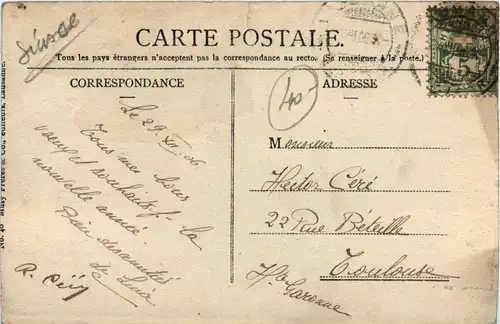 Suisse
CARTE POSTALE.
Tous les pays étrangers n'acceptent pas la correspondance au recto. (Se renseigner à la poste.)
CORRESPONDANCE
ADRESSE
40-
Le 29. XII. 06
Tous mes bons
vœux et souhaits p. la
nouvelle année.
Bien des amitiés
de
R. Céré
Monsieur
Hector Céré
22 Rue Béteille
Toulouse
Hte Garonne